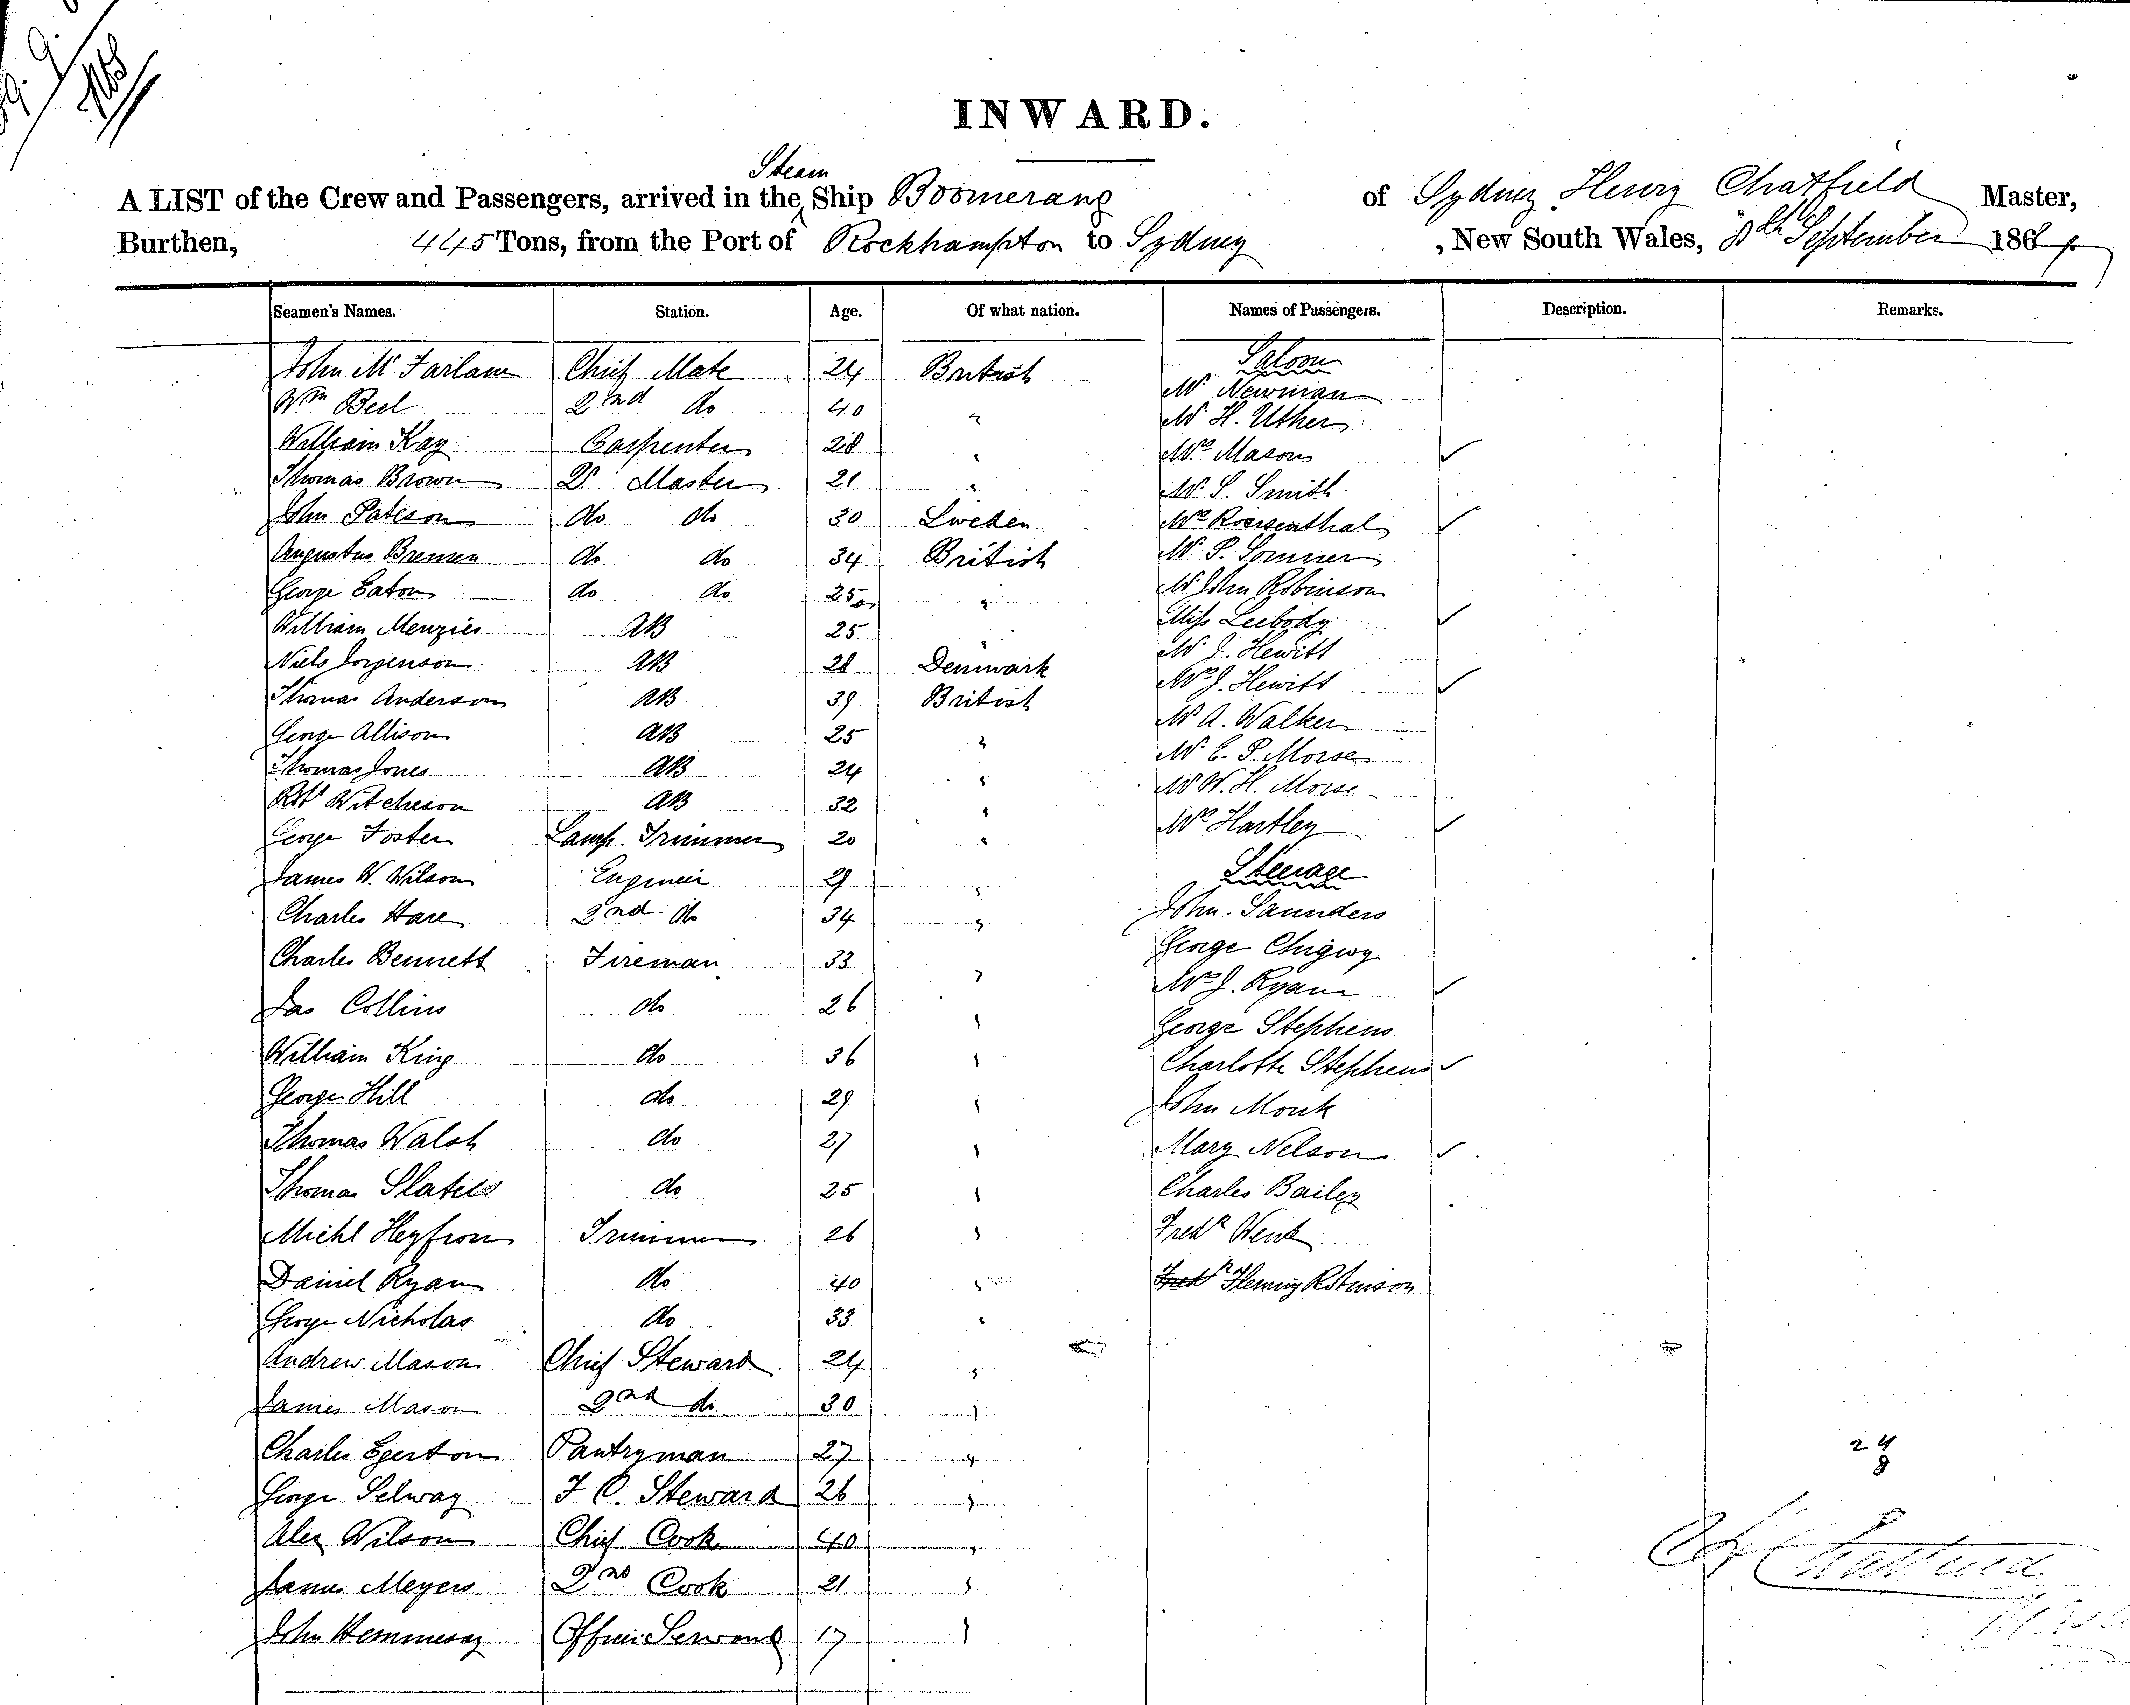 INWARD.
Steam
A LIST of the Crew and Passengers, arrived in the Ship Boomerang of Sydney Henry Chatfield Master,
Burthen, 445 Tons, from the Port of Rockhampton to Sydney , New South Wales, September 186
Seamen's Names. Station. Age. Of what nation. Names of Passengers. Description. Remarks.
Saloon
John Mc Farlane Chief Mate 24 British
Mr Newman
Wm Bell 2nd do 40 "
Mr H. Uther
William Kay Carpenter 28 "
Mrs Mason ✓
Thomas Brown Qr Master 21 "
Mr S. Smith
John Pateson do do 30 Sweden
Mrs Rosenthal ✓
Augustus Brensen do do 34 British
Mr P. Sommer
George Eaton do do 25 "
Mr John Robinson
William Menzies AB 25 "
Miss Leebody ✓
Mr J. Hewitt
Niels Jorgenson AB 28 Denmark
Mrs J. Hewitt ✓
Thomas Anderson AB 39 British
Mr A. Walker
George Allison AB 25 "
Mr E. P. Morse
Thomas Jones AB 24 "
Mr W. H. Morse
Robt Witcheson AB 32 "
Mrs Hartley ✓
George Foster Lamp Trimmer 20 "
Steerage
James W. Wilson Engineer 29 "
John Saunders
Charles Hare 2nd do 34 "
George Chigwy
Charles Bennett Fireman 33 "
Mrs J. Ryan ✓
Jas Collins do 26 "
George Stephens
William King do 36 "
Charlotte Stephens ✓
George Hill do 29 "
John Monk
Thomas Walsh do 27 "
Mary Nelson ✓
Thomas Slater do 25 "
Charles Bailey
Michl Heyfron Trimmer 26 "
Fredk Wenk
Daniel Ryan do 40 "
Fredk Henry Robinson
George Nicholas do 33 "
Andrew Mason Chief Steward 24 "
James Mason 2nd do 30 "
Charles Egerton Pantryman 27 "
24
8
George Selway F C. Steward 26 "
Alex Wilson Chief Cook 40 "
H Chatfield
James Meyers 2nd Cook 21 "
John Hennessy Officers Servant 17 "